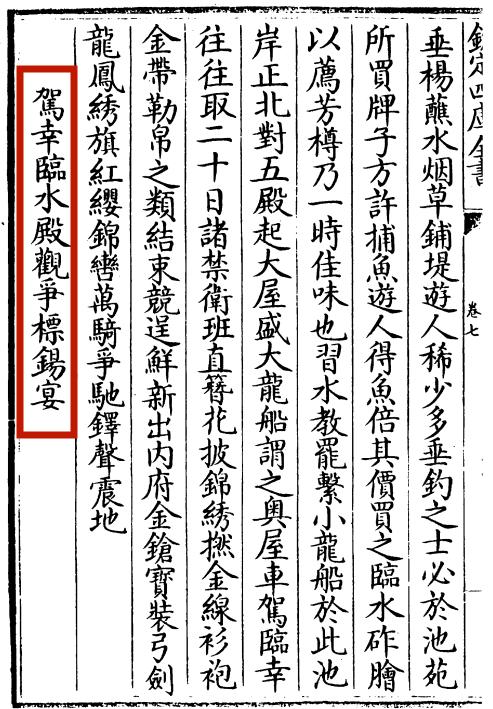 欽定四庫全書
卷七
垂楊蘸水烟草鋪堤遊人稀少多垂釣之士必於池苑
所買牌子方許捕魚遊人得魚倍其價買之臨水砟膾
以薦芳樽乃一時佳味也習水教罷繫小龍船於此池
岸正北對五殿起大屋盛大龍船謂之奥屋車駕臨幸
往往取二十日諸禁衛班直簪花披錦綉撚金線衫袍
金帶勒帛之類結束競逞鮮新出内府金鎗寶裝弓劍
龍鳳綉旗紅纓錦轡萬騎爭馳鐸聲震地
駕幸臨水殿觀爭標錫宴